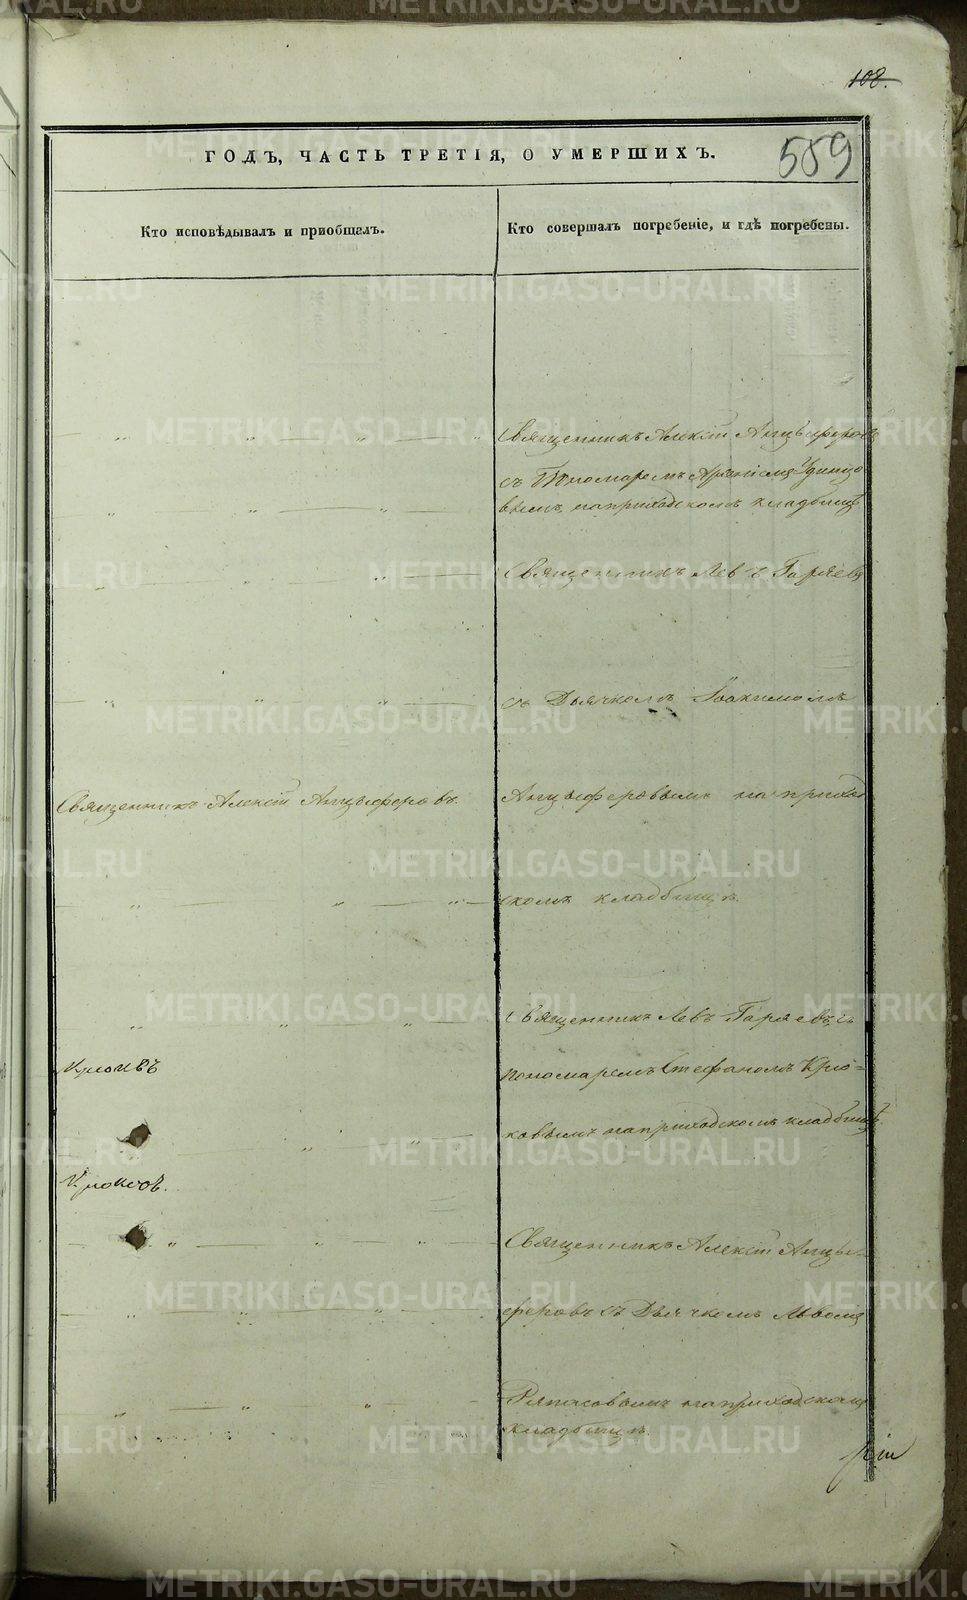 108.
ГОДЪ, ЧАСТЬ ТРЕТІЯ, О УМЕРШИХЪ.
559
Кто исповѣдывалъ и пріобщалъ.
Кто совершалъ погребеніе, и гдѣ погребены.
Священникъ Алексій Анцыферовъ
съ Пономаремъ Удинцо
вымъ, на приходскомъ кладбищѣ
Священникъ Левъ Гаряевъ
съ Дьячкомъ Іоакимомъ
Священникъ Алексій Анцыферовъ
Анцыферовымъ на приход
скомъ кладбищѣ.
Священникъ Левъ Гаряевъ съ
пономаремъ Стефаномъ Крю-
ковымъ на приходскомъ кладбищѣ.
Священникъ Алексій Анцы-
феровъ съ Дьячкомъ Львомъ
на приходскомъ
кладбищѣ.
METRIKI.GASO-URAL.RU